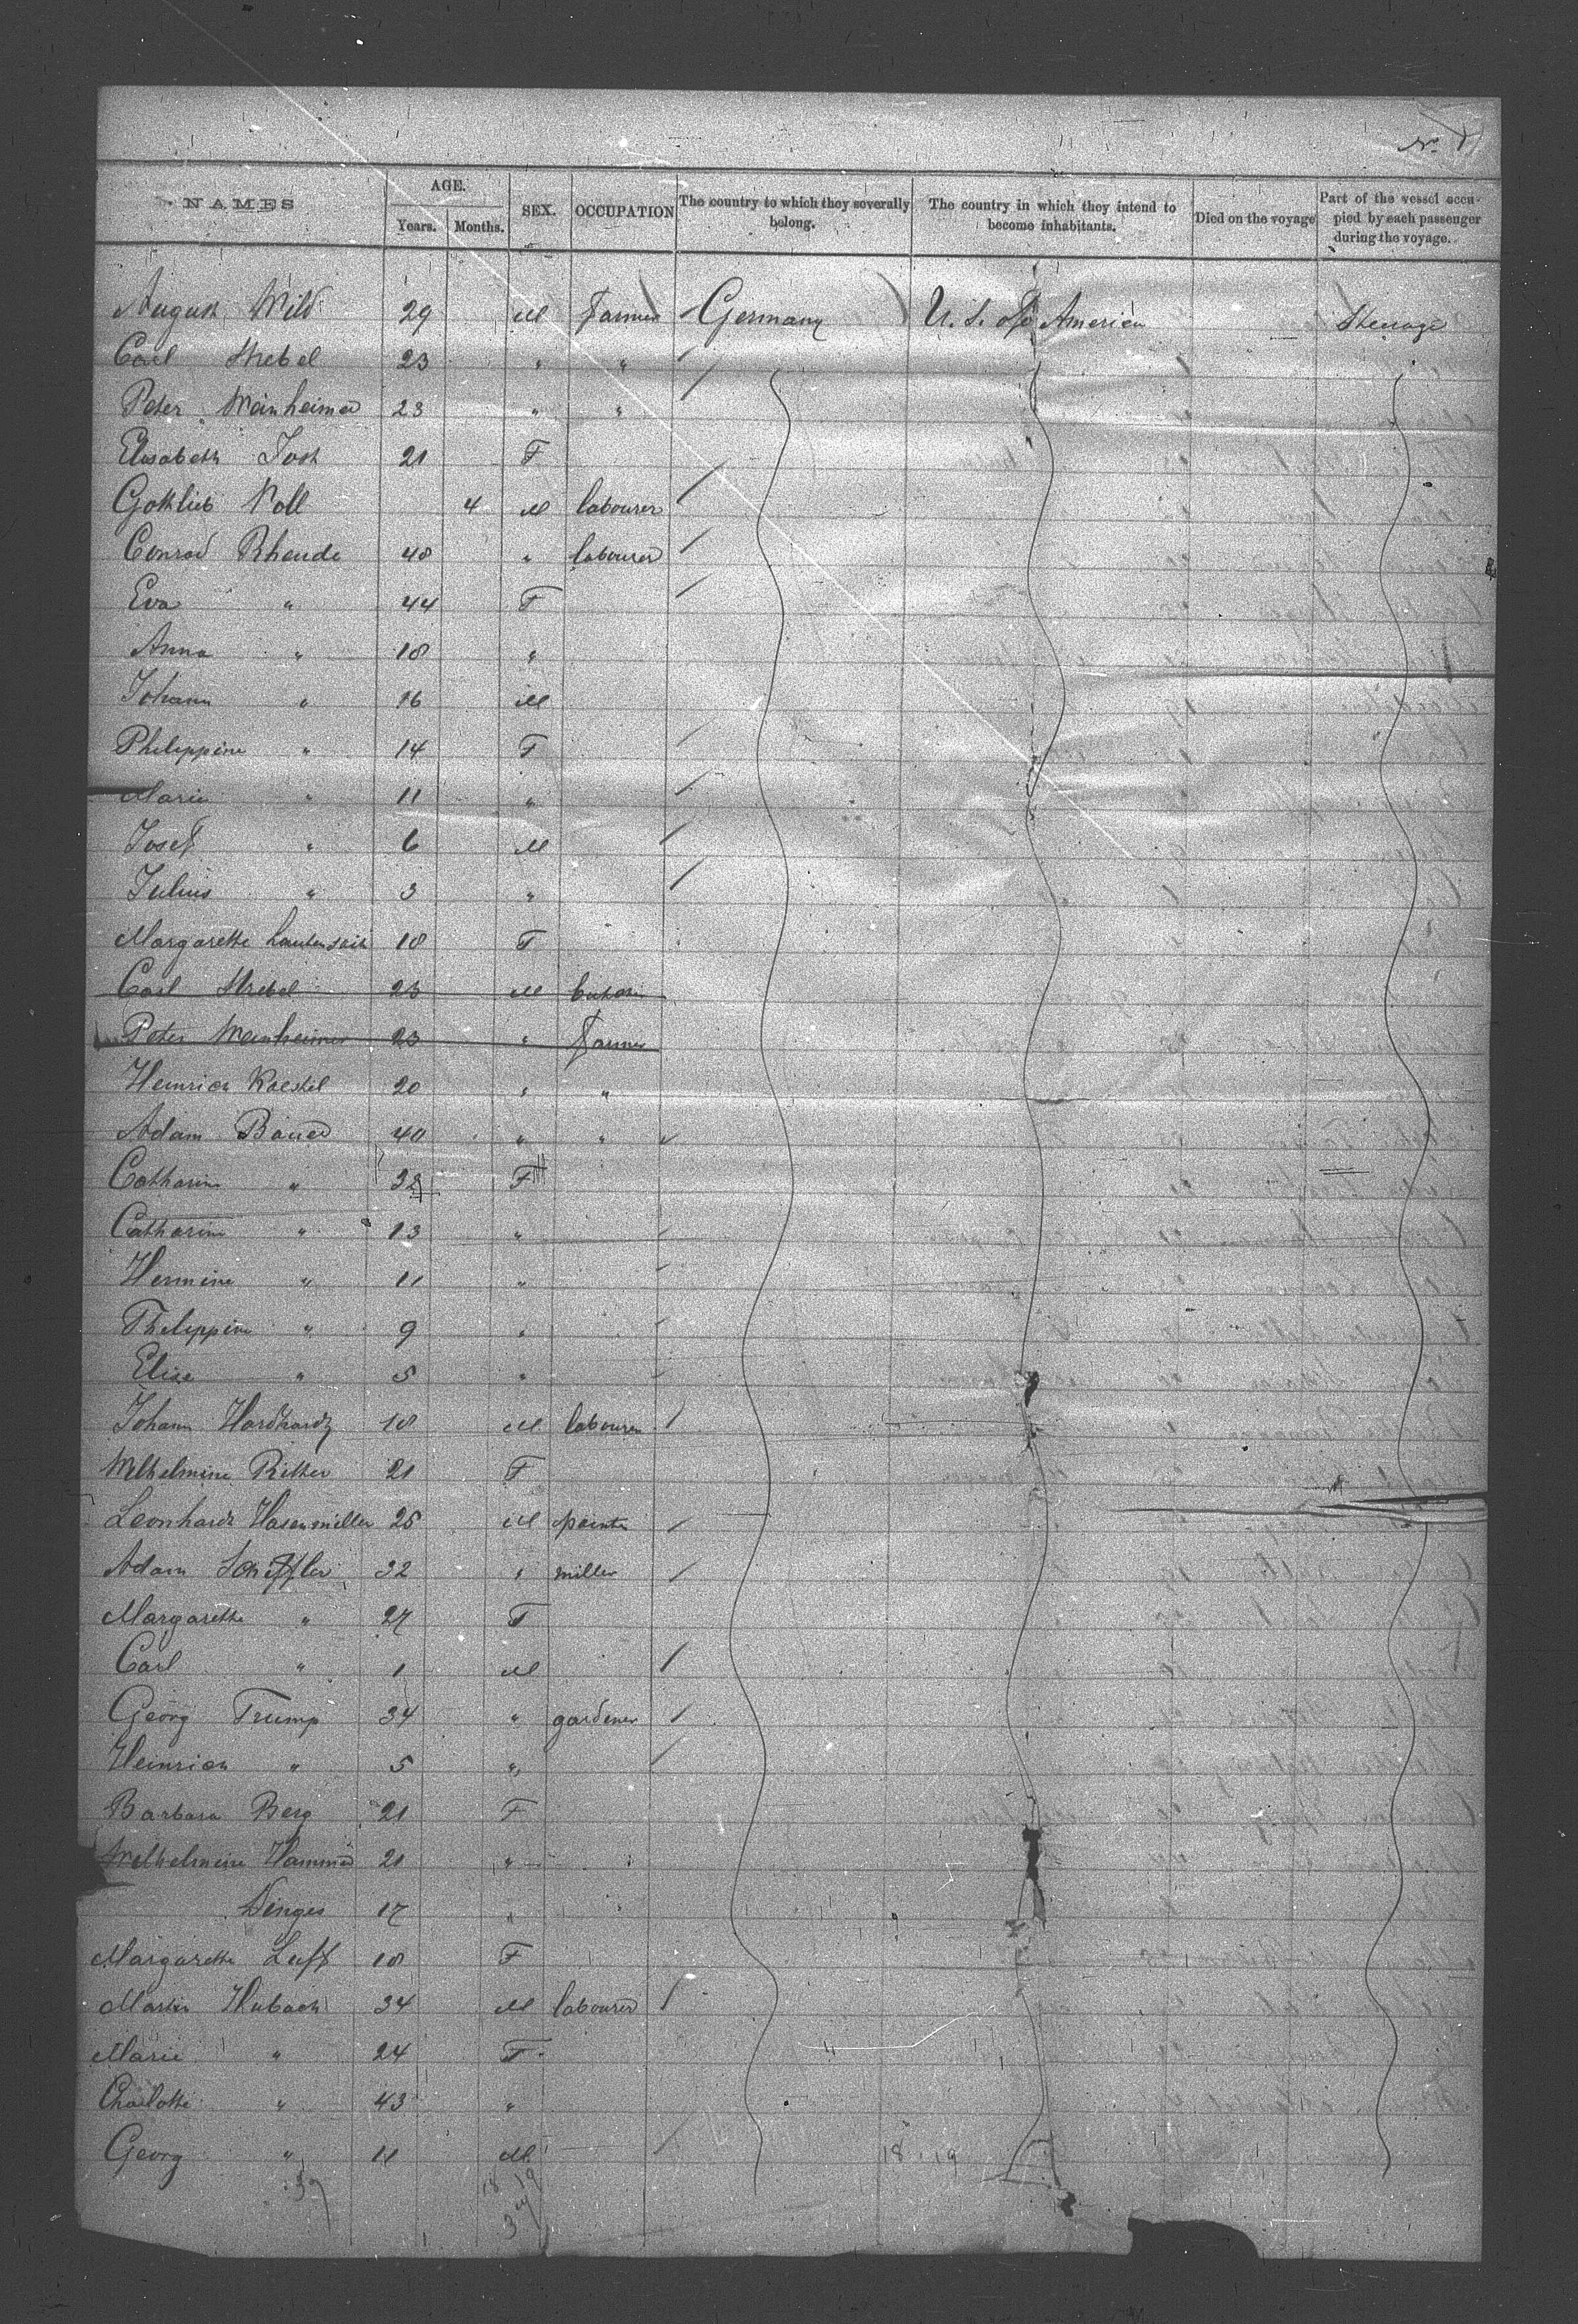 No. 1
NAMES AGE. Years. Months. SEX. OCCUPATION The country to which they severally belong. The country in which they intend to become inhabitants. Died on the voyage Part of the vessel occupied by each passenger during the voyage.
August Wild 29 M Farmer Germany U. S. of America Steerage
Carl Strebel 23 " "
Peter Weinheimer 23 " "
Elisabeth Jost 21 F
Gottlieb Noll 4 M labourer
Conrad Rheude 48 " labourer
Eva " 44 F
Anna " 18 "
Johann " 16 M
Philippine " 14 F
Marie " 11 "
Josef " 6 M
Julius " 3 "
Margarethe 18 F
Carl Strebel 23 M butcher
Peter Weinheimer 23 " Farmer
Heinrich Koestel 20 " "
Adam Bauer 40 " "
Catharine " 32 F
Catharine " 13 "
Hermine " 11 "
Philippine " 9 "
Elise " 5 "
Johann 18 M labourer
Wilhelmine Ritter 21 F
Leonhardt Hasenmüller 25 M painter
Adam Scheffler 32 " miller
Margarethe " 27 F
Carl " 1 M
Georg Trump 34 " gardener
Heinrich " 5 "
Barbara Berg 21 F
Wilhelmine Hammer 21 "
Dinges 17 "
Margarethe Luff 18 F
Martin Hubach 34 M labourer
Marie " 24 F
Charlotte " 43 "
Georg " 11 M 18 19
39 18 19
37